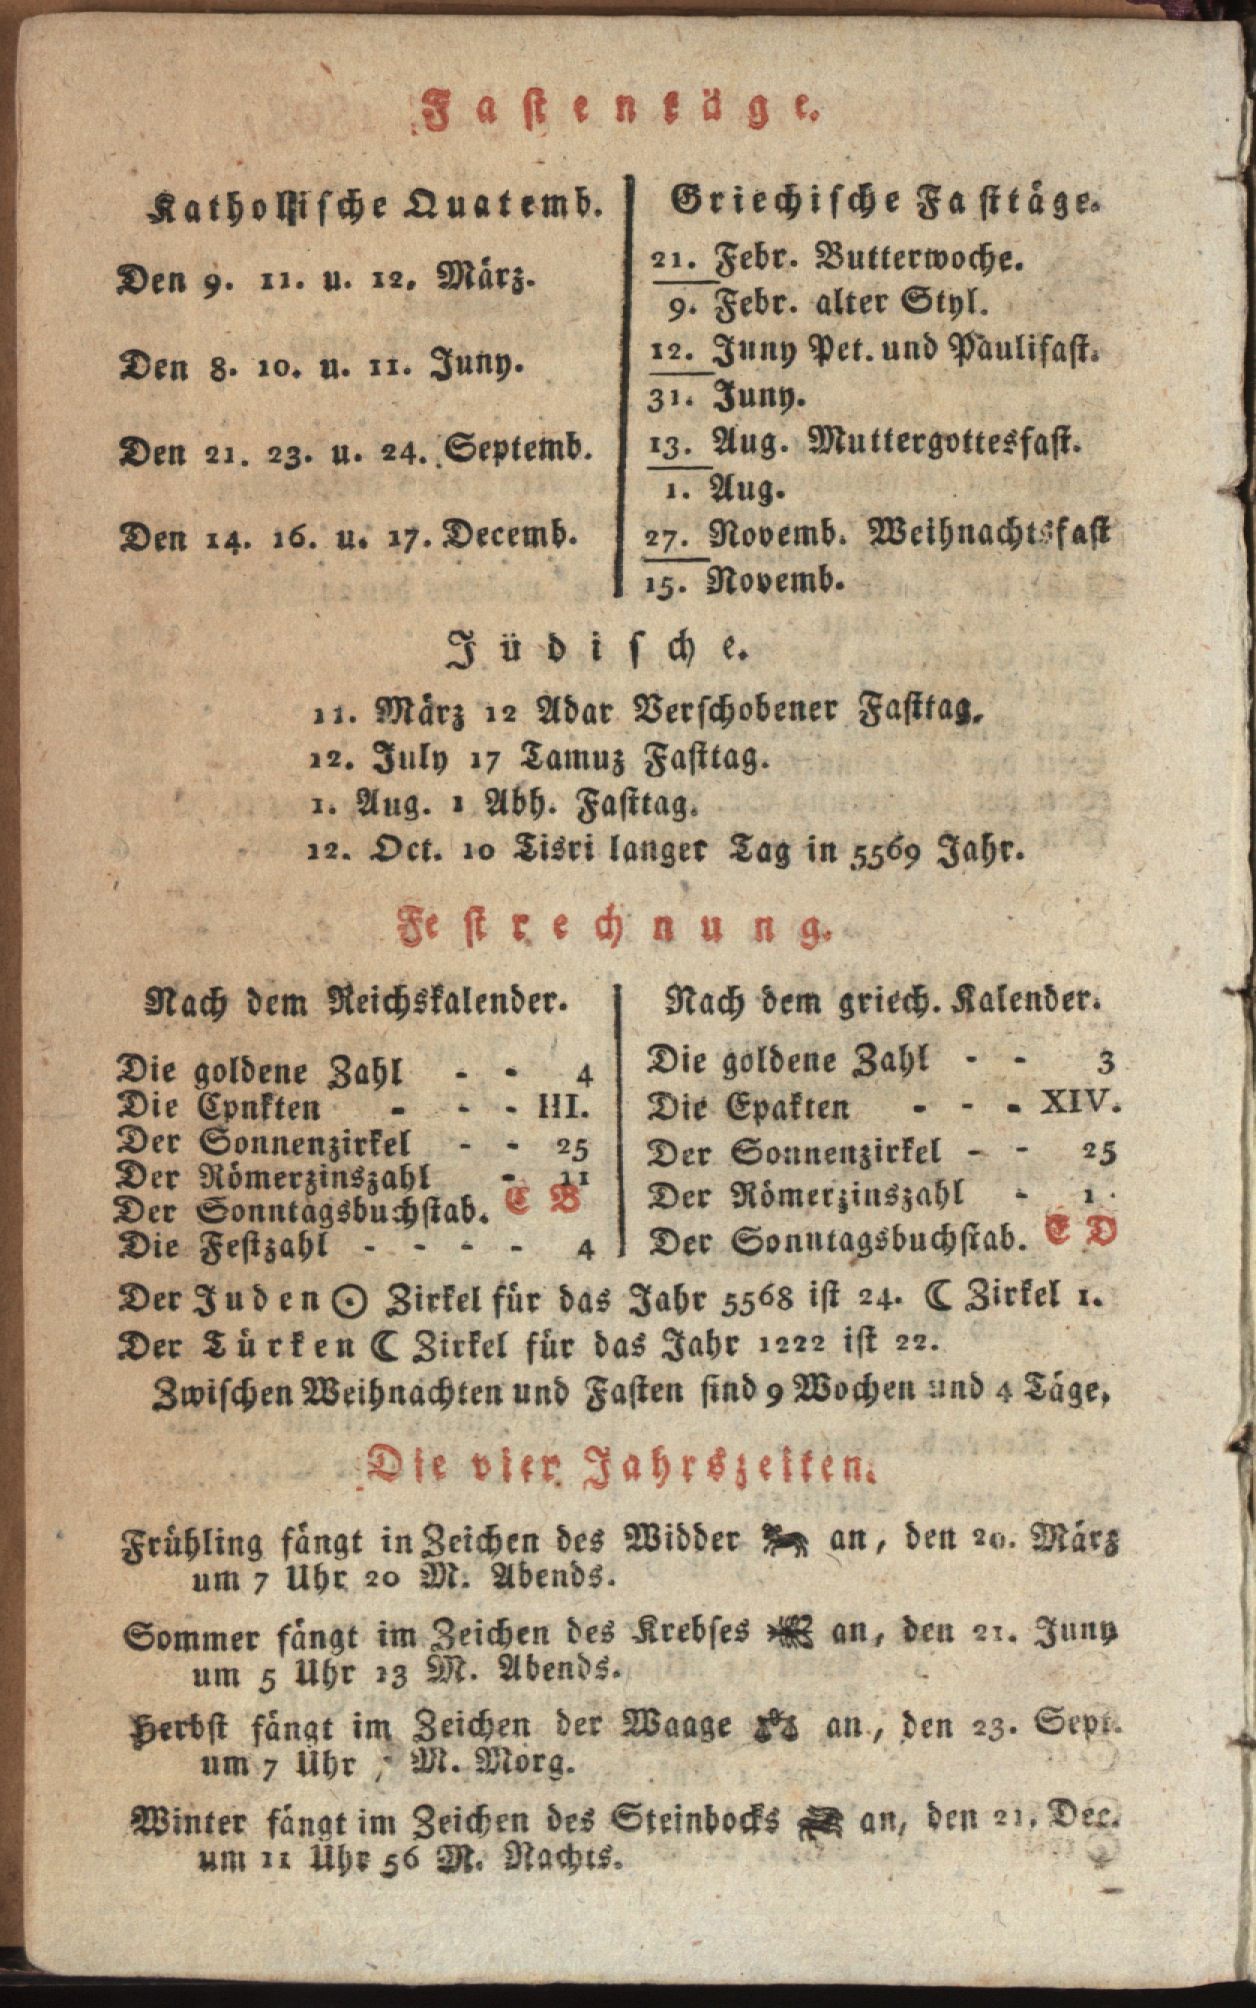 Fastentäge.
Katholische Quatemb.
Den 9. 11. u. 12. März.
Den 8. 10. u. 11. Juny.
Den 21. 23. u. 24. Septemb.
Den 14. 16. u. 17. Decemb.
Griechische Fasttäge.
21. Febr. Butterwoche.
9. Febr. alter Styl.
12. Juny Pet. und Paulifast.
31. Juny.
13. Aug. Muttergottesfast.
1. Aug.
27. Novemb. Weihnachtsfast
15. Novemb.
Jüdische.
11. März 12 Adar Verschobener Fasttag.
12. July 17 Tamuz Fasttag.
1. Aug. 1 Abh. Fasttag.
12. Oct. 10 Tisri langer Tag in 5569 Jahr.
Festrechnung.
Nach dem Reichskalender.
Die goldene Zahl - - 4
Die Epnkten - - - III.
Der Sonnenzirkel - - 25
Der Römerzinszahl - 11
Der Sonntagsbuchstab. C B
Die Festzahl - - - - 4
Nach dem griech. Kalender.
Die goldene Zahl - - 3
Die Epakten - - - XIV.
Der Sonnenzirkel - - 25
Der Römerzinszahl - 1
Der Sonntagsbuchstab. E D
Der Juden ☉ Zirkel für das Jahr 5568 ist 24. ☾ Zirkel 1.
Der Türken ☾ Zirkel für das Jahr 1222 ist 22.
Zwischen Weihnachten und Fasten sind 9 Wochen und 4 Täge.
Die vier Jahrszeiten.
Frühling fängt in Zeichen des Widder an, den 20. März
um 7 Uhr 20 M. Abends.
Sommer fängt im Zeichen des Krebses an, den 21. Juny
um 5 Uhr 13 M. Abends.
Herbst fängt im Zeichen der Waage an, den 23. Sept.
um 7 Uhr M. Morg.
Winter fängt im Zeichen des Steinbocks an, den 21. Dec.
um 11 Uhr 56 M. Nachts.